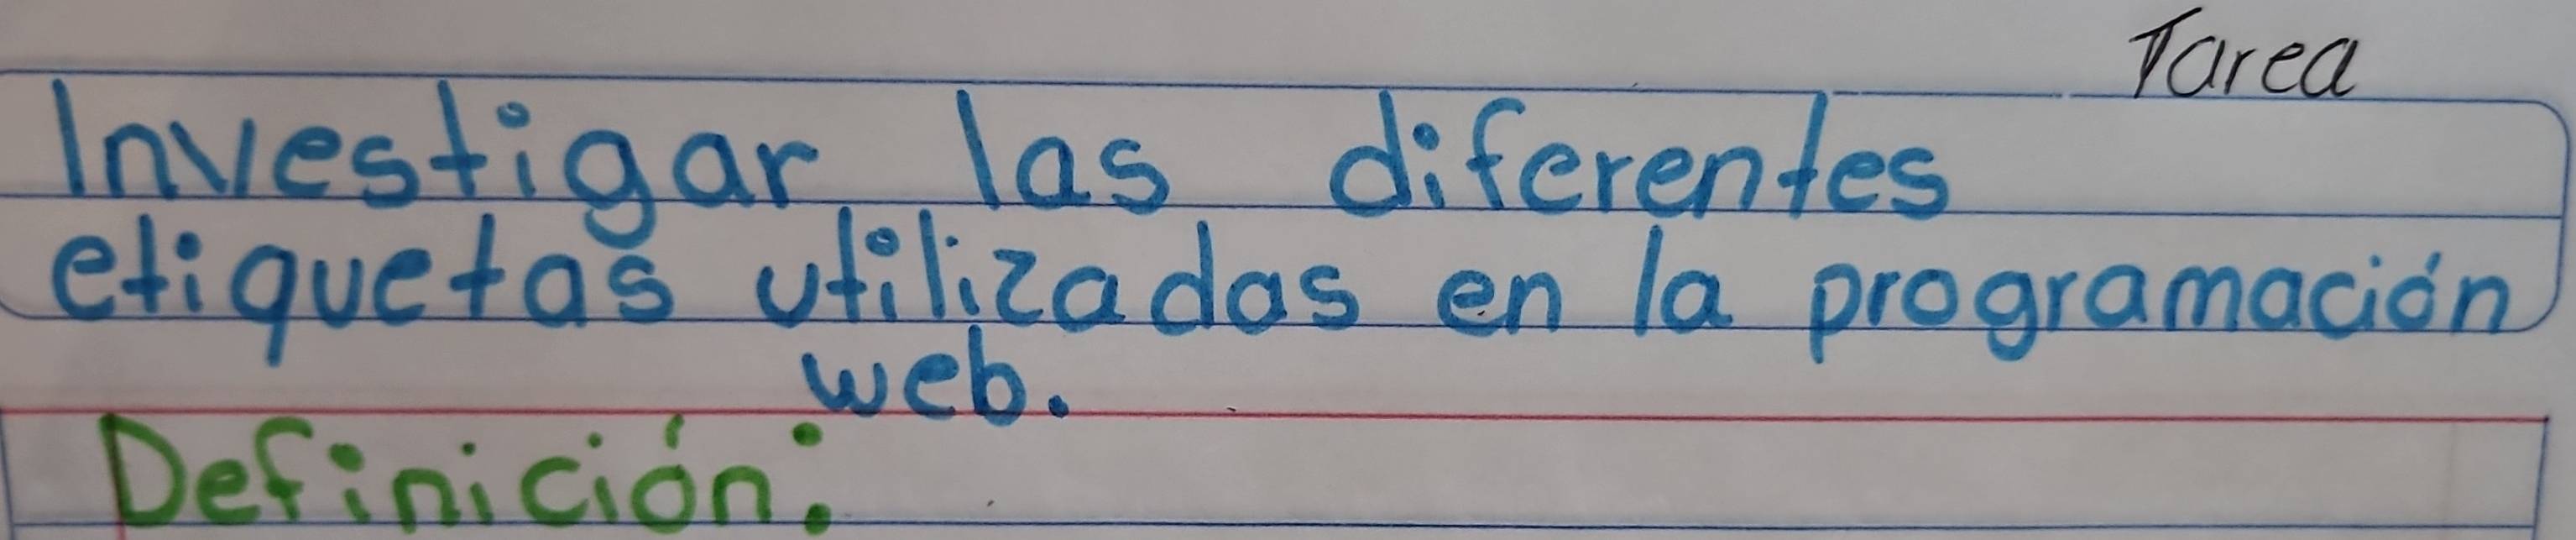 Tarea
Investigar las diferentes
etiquetas utilizadas en la programación
web.
Definición: